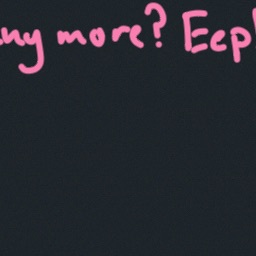 any more? Eep